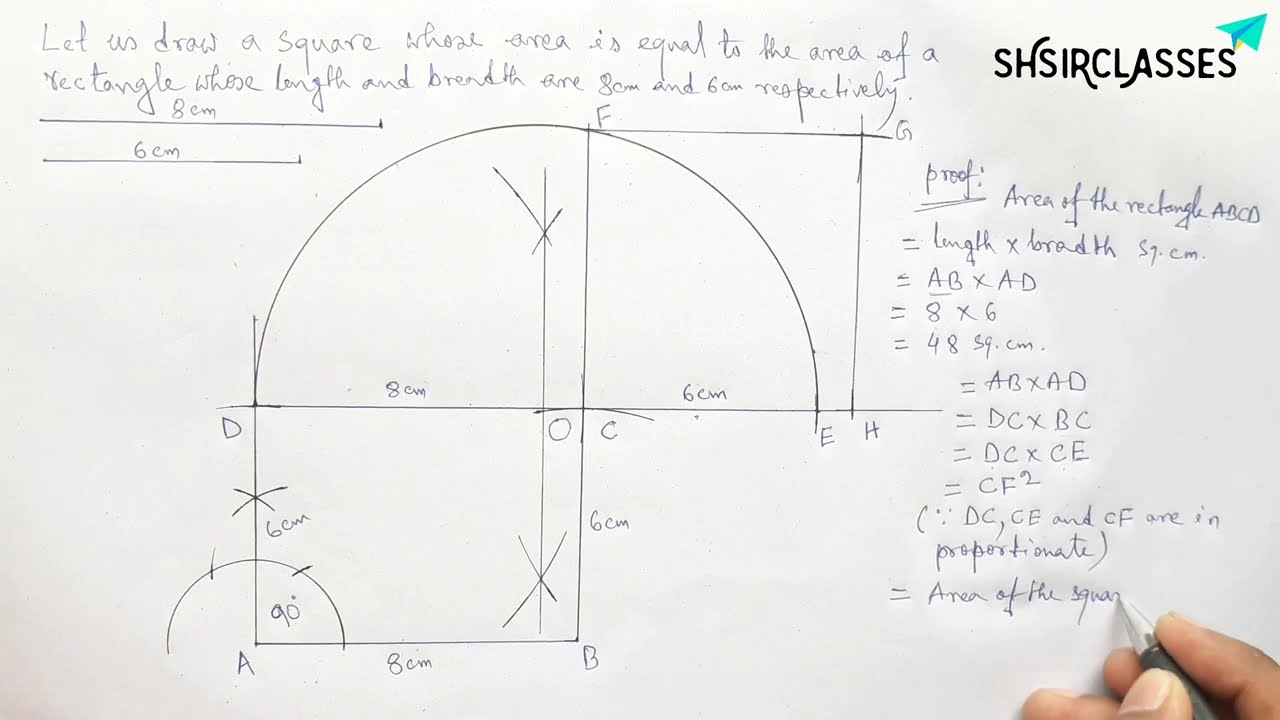 Let us draw a square whose area is equal to the area of a
rectangle whose length and breadth are 8cm and 6cm respectively.
SHSIRCLASSES
8cm
6cm
F
G
8cm
6cm
D
O
C
E
H
6cm
6cm
90°
A
8cm
B
proof:
Area of the rectangle ABCD
= length × bradth sq.cm.
= AB × AD
= 8 × 6
= 48 sq.cm.
= AB×AD
= DC × BC
= DC × CE
= CF²
(∵ DC, CE and CF are in
proportionate)
= Area of the squar